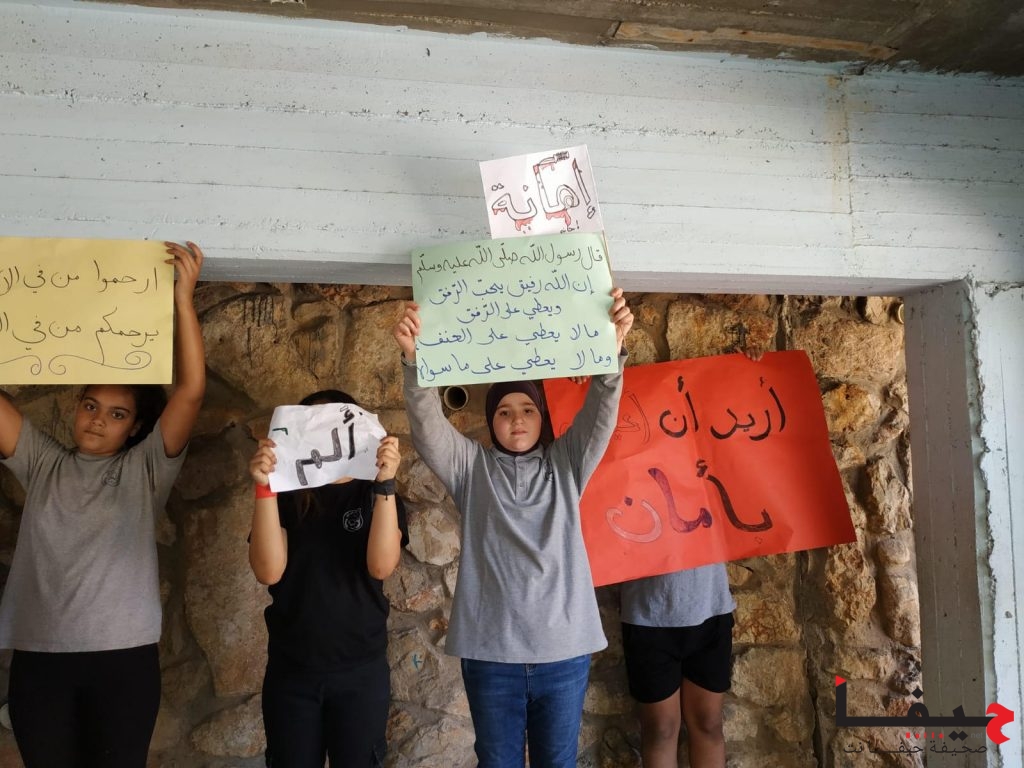 إهانة
قال رسول الله صلّى الله عليه وسلّم
إن الله رفيق يحب الرّفق
ويعطي على الرّفق
ما لا يعطي على العنف
وما لا يعطي على ما سواه
ارحموا من في
يرحمكم من في
ألم
أريد أن
بأمان
حيفا
صحيفة حيفا نت